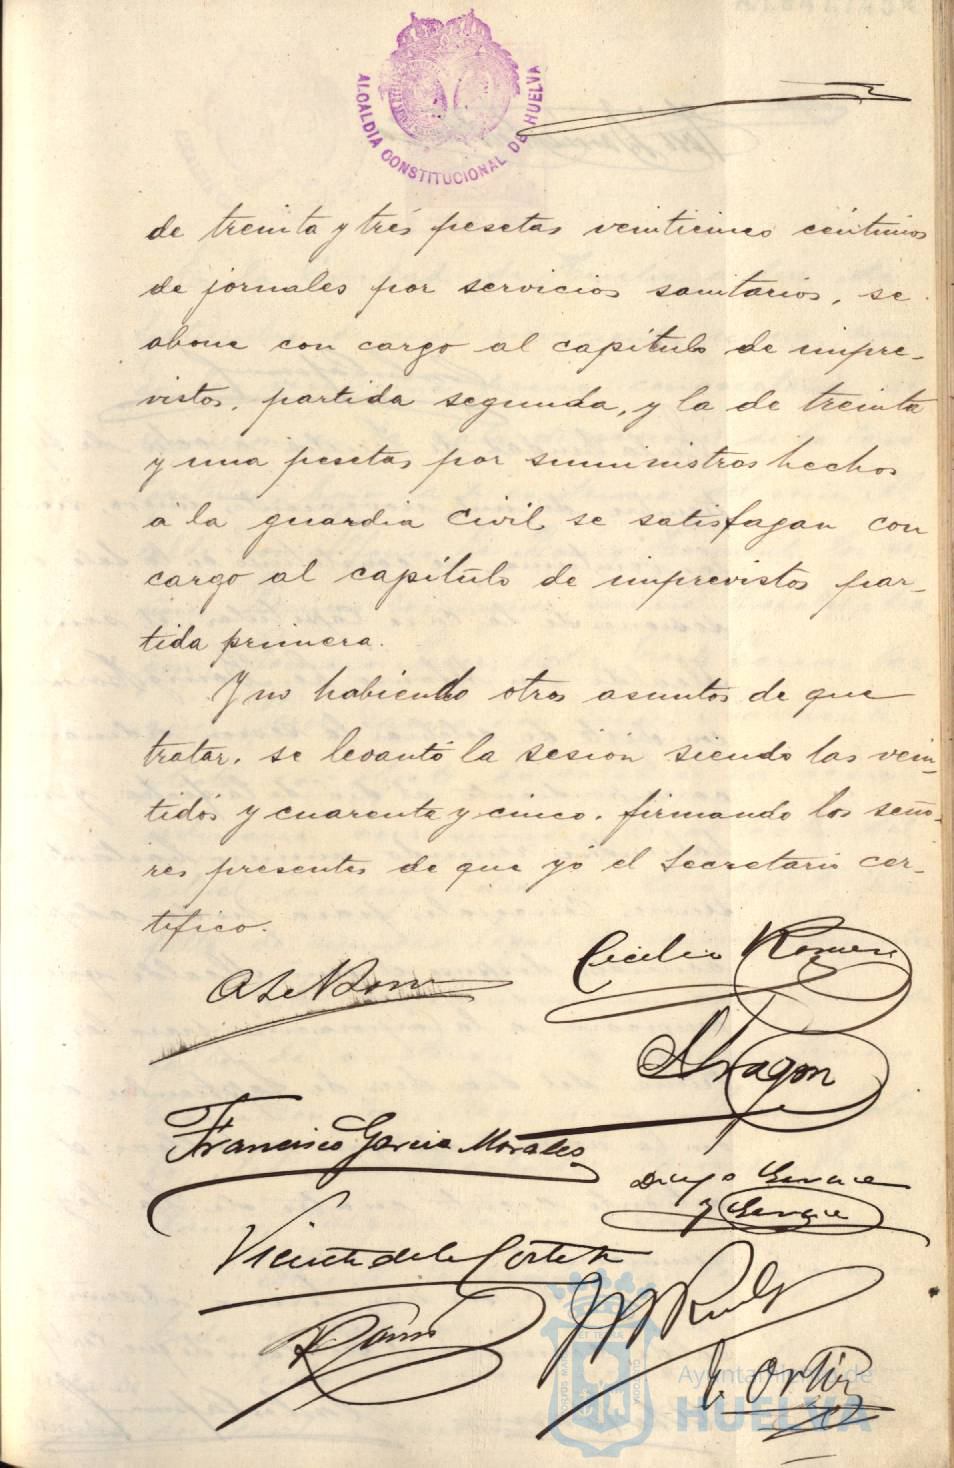 ALCALDIA CONSTITUCIONAL DE HUELVA
de treinta y tres pesetas veinticinco céntimos
de jornales por servicios sanitarios, se
abone con cargo al capítulo de impre-
vistos, partida segunda, y la de treinta
y una pesetas por suministros hechos
á la guardia civil se satisfagan con
cargo al capítulo de imprevistos par-
tida primera.
Y no habiendo otros asuntos de que
tratar, se levantó la sesión siendo las vein-
tidós y cuarenta y cinco, firmando los seño-
res presentes de que yó el Secretario cer-
tifico.
Cecilio Romero
Aragon
Francisco Garcia Morales
Diego
y
Vicente de la Corte
Ortiz
Ayuntamiento de
HUELVA